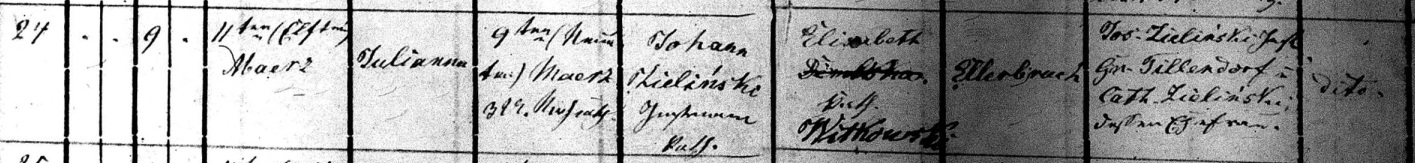 24 . . 9 .
11ten (Elften)
Maerz
Julianna
9ten (Neun
ten) Maerz
3 Uhr
Johann
Zieliński
Instmann
Kath.
Elisabeth
Kath.
Witkowski.
Ellerbruch
Jos. Zieliński Inst
Gr. Tillendorf u
Cath. Zielińska,
dessen Ehefrau.
dito.
25